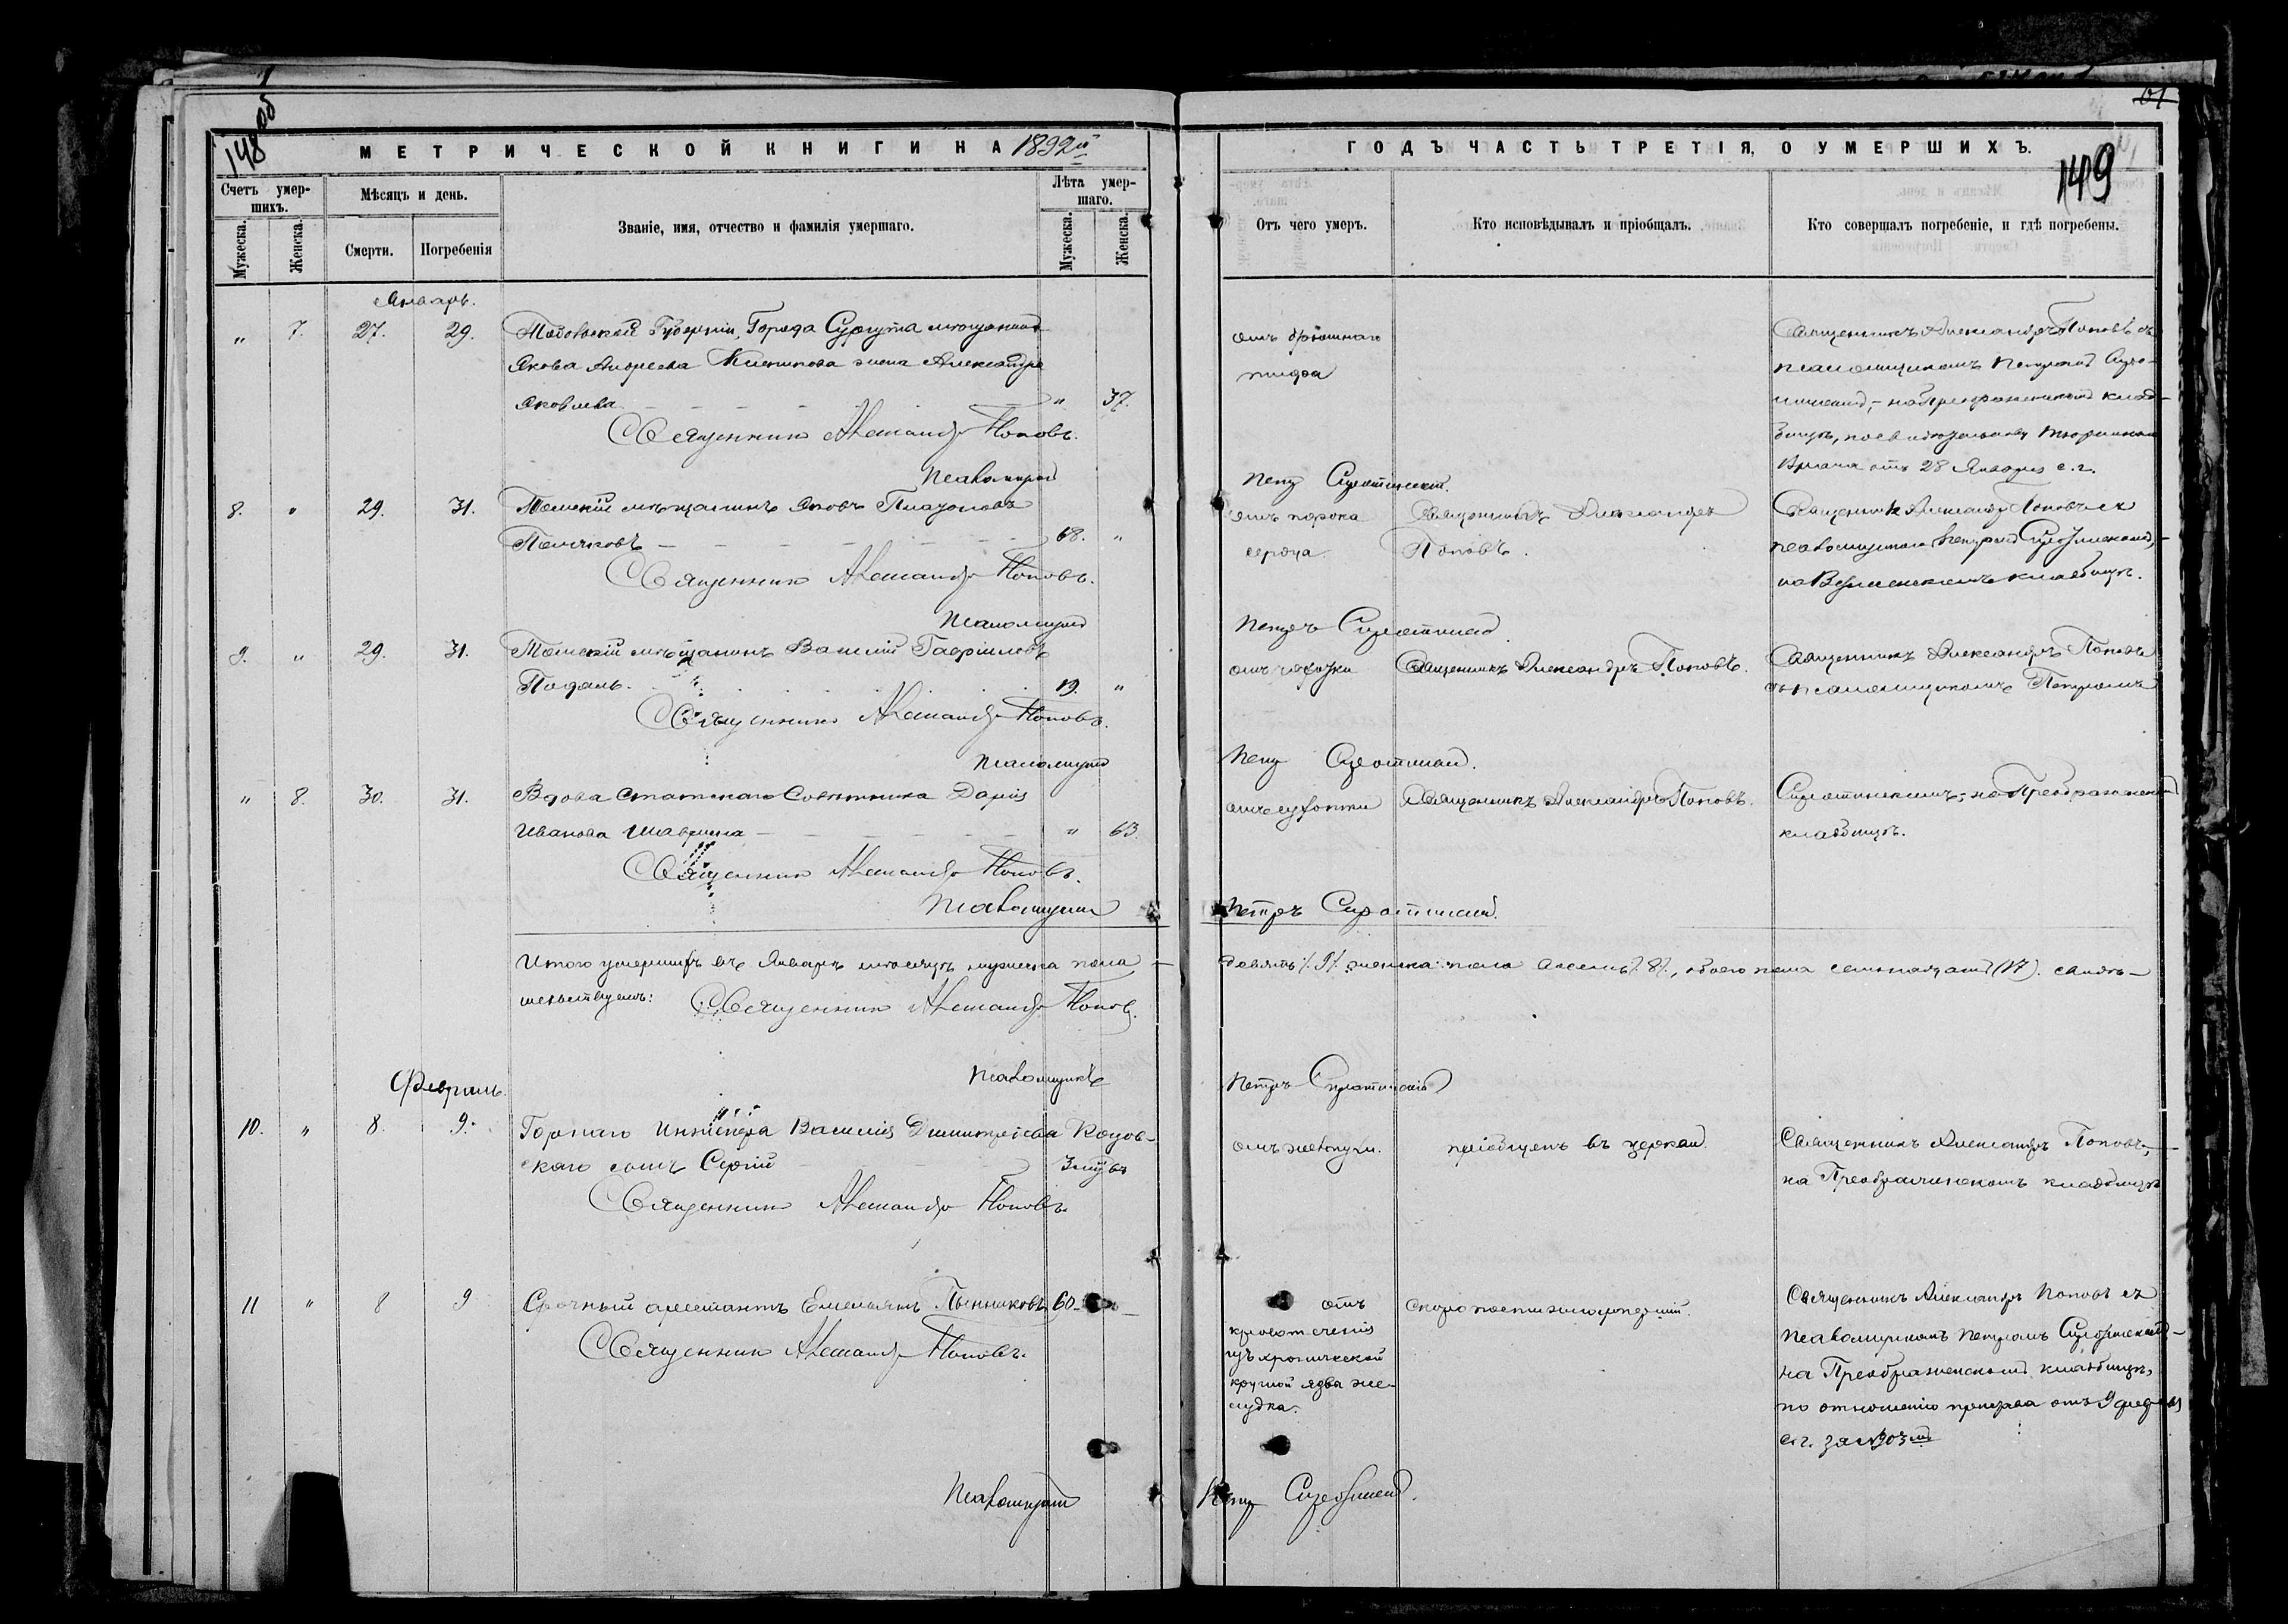 148 об
МЕТРИЧЕСКОЙ КНИГИ НА 1892й
Счетъ умер-
шихъ.
Мѣсяцъ и день.
Званіе, имя, отчество и фамилія умершаго.
Лѣта умер-
шаго.
Мужеска.
Женска.
Смерти.
Погребенія
Мужеска.
Женска.
Январь.
" 7. 27. 29. Тобольской Губерніи, Города Сургута мѣщанина
Якова Андреева жена Александра
Яковлева " 37.
Священникъ Александръ Поповъ.
Псаломщикъ
8. " 29. 31. Томскій мѣщанинъ Яковъ Платоновъ
68. "
Священникъ Александръ Поповъ.
Псаломщикъ
9. " 29. 31. Томскій мѣщанинъ Василій Гавріиловъ
19. "
Священникъ Александръ Поповъ.
Псаломщикъ
" 8. 30. 31. Вдова Статскаго Совѣтника Дарія
Иванова Шаврина " 63.
Священникъ Александръ Поповъ.
Псаломщикъ
Итого умершихъ въ Январѣ мѣсяцѣ мужеска пола
шельствуемъ: Священникъ Александръ Поповъ.
Псаломщикъ
Февраль.
10. " 8. 9. Горнаго Инженера Василія Димитріева Коцов-
скаго сынъ Сергій
Священникъ Александръ Поповъ.
11 " 8 9 Срочный арестантъ Емельянъ 60
Священникъ Александръ Поповъ.
Псаломщикъ
61
149
ГОДЪ ЧАСТЬ ТРЕТІЯ, О УМЕРШИХЪ.
Отъ чего умеръ.
Кто исповѣдывалъ и пріобщалъ.
Кто совершалъ погребеніе, и гдѣ погребены.
отъ брюшнаго
тифа
Священникъ Александръ Поповъ съ
псаломщикомъ Петромъ Сиро-
тинскимъ, на Преображенскомъ клад-
бищѣ, по свидѣтельству тюремнаго
врача отъ 28 Января с. г.
Петръ Сиротинскій.
отъ порока
сердца
Священникъ Александръ
Поповъ.
Священникъ Александръ Поповъ съ
псаломщикомъ Петромъ Сиротинскимъ, -
на Вознесенскомъ кладбищѣ.
Петръ Сиротинскій.
отъ чахотки
Священникъ Александръ Поповъ.
Священникъ Александръ Поповъ
съ псаломщикомъ Петромъ
Петръ Сиротинскій.
отъ сухотки
Священникъ Александръ Поповъ.
Сиротинскимъ, на Преображенскомъ
кладбищѣ.
Петръ Сиротинскій.
девять /.9/. женска пола восемь /.8/., обоего пола семнадцать (17). Свидѣ-
Петръ Сиротинскій
пріобщенъ въ церкви.
Священникъ Александръ Поповъ, -
на Преображенскомъ кладбищѣ
отъ
кровотеченія
изъ хронической
круглой язвы же-
лудка.
скоропостижно умершій.
Священникъ Александръ Поповъ съ
псаломщикомъ Петромъ Сиротинскимъ -
на Преображенскомъ кладбищѣ,
по отношенію отъ 9 февраля
с. г. за №
Петръ Сиротинскій.